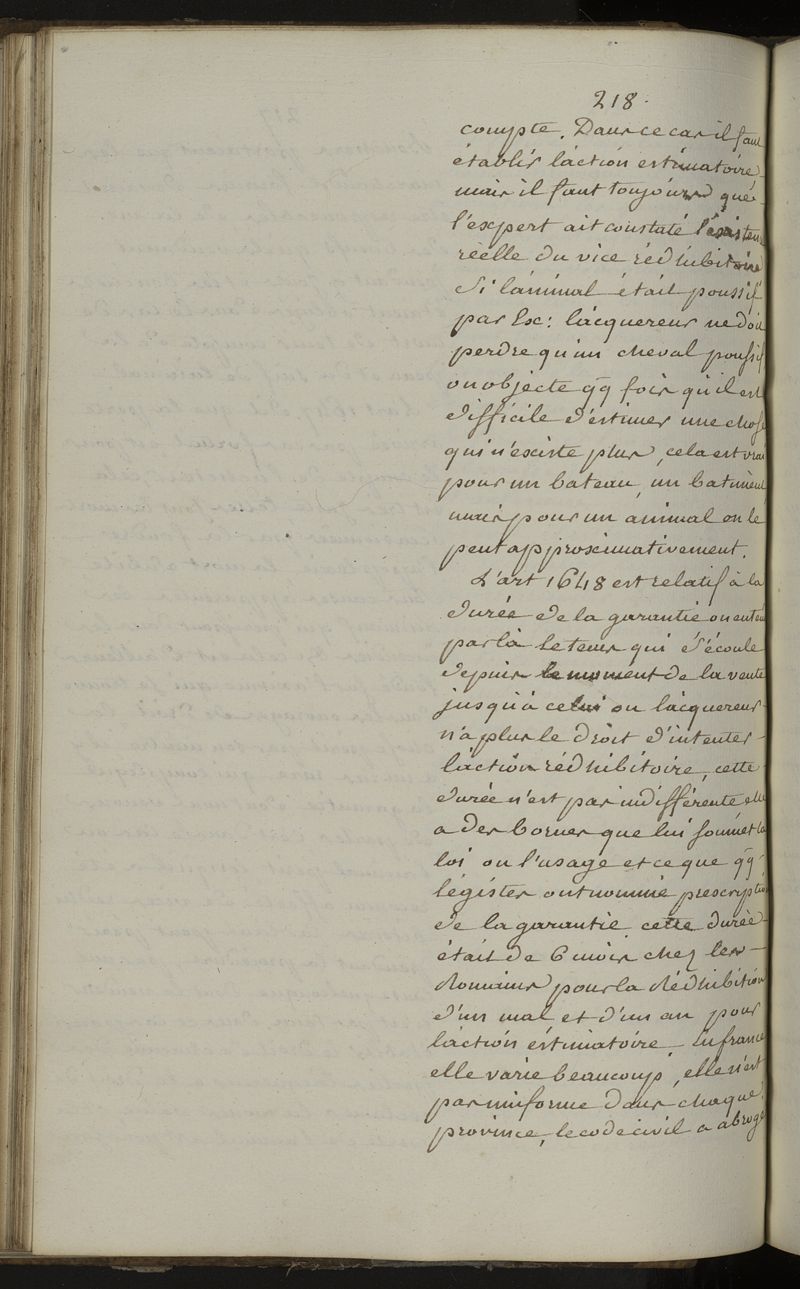 218.
compte. Dans ce cas il faut
établir l'action estimatoire
mais il faut toujours que
l'expert ait constaté l'existence
réelle du vice rédhibitoire
Si l'animal était poussif
par Ex: l'acquereur ne doit
perdre qu'un cheval poussif
on objecte qq fois qu'il est
difficile d'estimer une chose
qui n'existe plus, cela est vrai
pour un bateau, un batiment
mais pour un animal on le
peut approximativement.
L'art 1648 est relatif à la
durée de la garantie on entend
par là le tems qui s'écoule
depuis le moment de la vente
jusqu'à celui ou l'acquereur
n'a plus le droit d'intenter
l'action rédhibitoire, cette
durée n'est pas indifférente elle
a des bornes que lui soumet la
loi ou l'usage et ce que qq
légistes ont nommé prescription
de la garantie cette durée
était de 6 mois chez les
Romains pour la Rédhibition
d'un mal et d'un an pour
l'action éstimatoire - En france
elle varie beaucoup, elle n'est
pas uniforme dans chaque
province, le code civil a abrogé